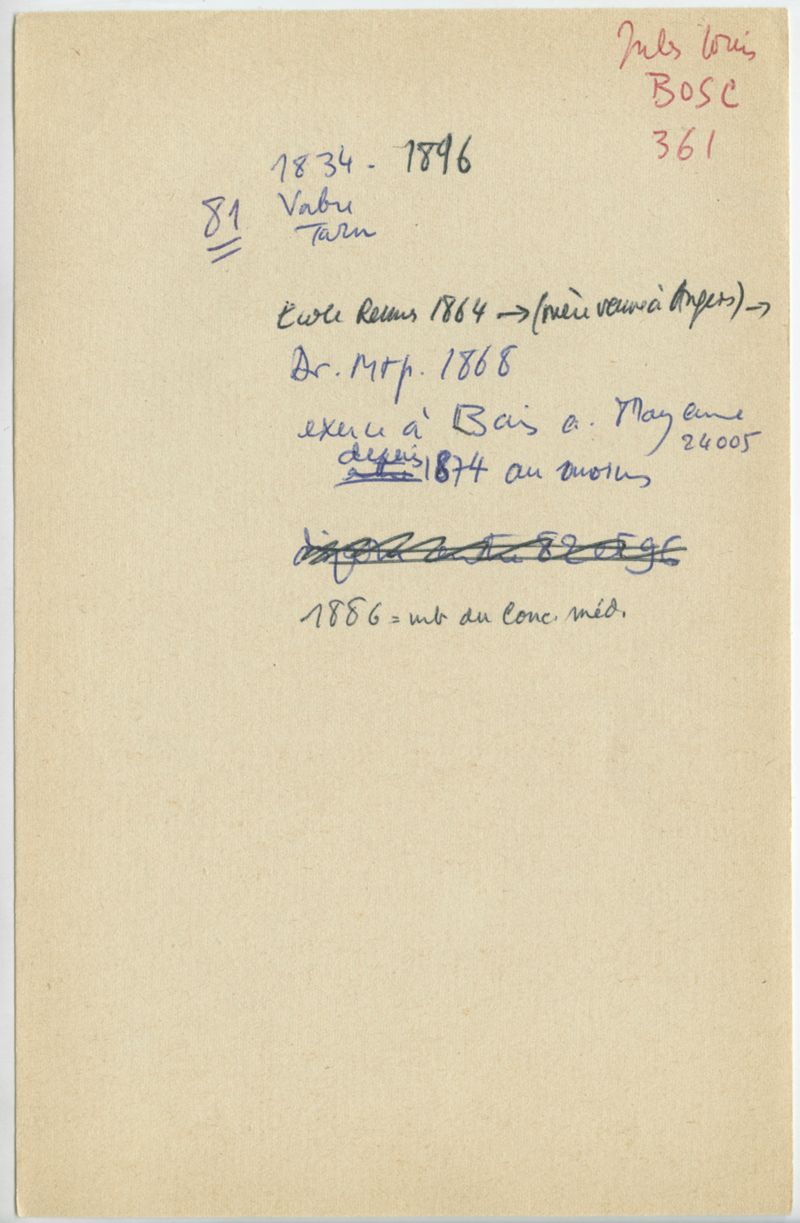 Jules Louis
BOSC
361
1834 - 1896
81 Vabre
Tarn
Ecole Rennes 1864 → (mère veuve à Angers) →
Dr. Mtp. 1868
exerce à Bais a. Mayenne
24005
depuis
1874 au moins
entre 82 et 96
1886 = mb du Conc. méd.